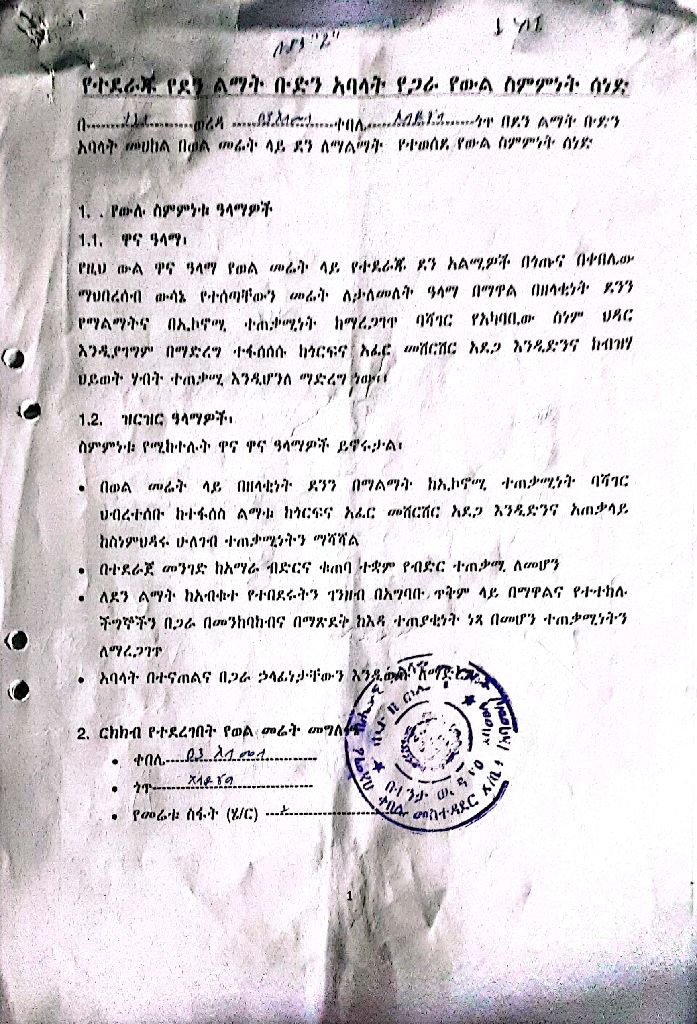 የተደራጁ የደን ልማት ቡድን አባላት የጋራ የውል ስምምነት ሰነድ
በ ወረዳ ቀበሌ ጎጥ በደን ልማት ቡድን
አባላት መሀከል በወል መሬት ላይ ደን ለማልማት የተወሰደ የውል ስምምነት ሰነድ
1. . የውሉ ስምምነቱ ዓላማዎች
1.1. ዋና ዓላማ፡
የዚህ ውል ዋና ዓላማ የወል መሬት ላይ የተደራጁ ደን አልሚዎች በጎጡና በቀበሌው
ማህበረሰብ ውሳኔ የተሰጣቸውን መሬት ለታለመለት ዓላማ በማዋል በዘላቂነት ደንን
የማልማትና በኢኮኖሚ ተጠቃሚነት ከማረጋገጥ ባሻገር የአካባቢው ስነም ህዳር
እንዲያገግም በማድረግ ተፋሰሱ ከጎርፍና አፈር መሸርሸር አደጋ እንዲድንና ከብዝሃ
ህይወት ሃብት ተጠቃሚ እንዲሆንለ ማድረግ ነው፡፡
1.2. ዝርዝር ዓላማዎች፡
ስምምነቱ የሚከተሉት ዋና ዋና ዓላማዎች ይኖሩታል፡
• በወል መሬት ላይ በዘላቂነት ደንን በማልማት ከኢኮኖሚ ተጠቃሚነት ባሻገር
ህብረተሰቡ ከተፋሰስ ልማቱ ከጎርፍና አፈር መሸርሸር አደጋ እንዲድንና አጠቃላይ
ከስነምህዳሩ ሁለገብ ተጠቃሚነትን ማሻሻል
• በተደራጀ መንገድ ከአማራ ብድርና ቁጠባ ተቋም የብድር ተጠቃሚ ለመሆን
• ለደን ልማት ከአብቁተ የተበደሩትን ገንዘብ በአግባቡ ጥቅም ላይ በማዋልና የተተከሉ
ችግኞችን በጋራ በመንከባከብና በማጽደት ከእዳ ተጠያቂነት ነጻ በመሆን ተጠቃሚነትን
ለማረጋገጥ
• አባላት በተናጠልና በጋራ ኃላፊነታቸውን እንዲወጡ ለማድረግ
2. ርክክብ የተደረገበት የወል መሬት መግለጫ
• ቀበሌ
• ጎጥ
• የመሬቱ ስፋት (ሄ/ር)
ቀበሌ መስተዳደር ጽ/ቤት
1